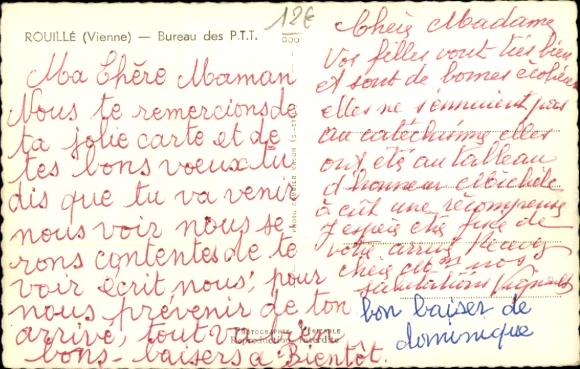 ROUILLÉ (Vienne) — Bureau des P.T.T.
12€
Ma Chère Maman
Nous te remercions de
ta jolie carte et de
tes bons voeux tu
dis que tu va venir
nous voir nous se
rons contentes de te
voir écrit nous, pour
nous prévenir de ton
arrivé, tout
bons-baisers a Bientôt.
Chère Madame
Vos filles vont très bien
et sont de bonnes
elles ne s'ennuient pas
au catéchisme elles
ont été au tableau
d'honneur Michèle
a eût une récompense
de
votre
chère nos
salutations
bon baiser de
dominique
PHOTOGRAPHIE VÉRITABLE
Reproduction interdite